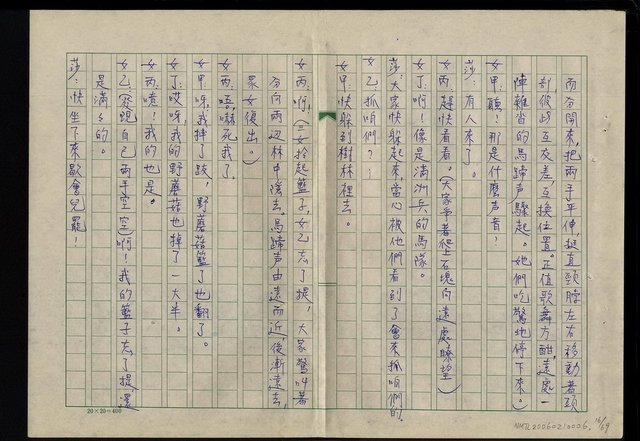 而分開來，把兩手平伸，挺直頸膀左右移動著頭
部彼此互交差，互換位置。正值歌舞方酣，遠處一
陣雜沓的馬蹄声驟起。她們吃驚地停下來。）
莎：有人來了。
女甲：聽！那是什麼声音？
女丙：趕快看看。（大家爭著爬上石塊向遠處瞭望）
女丁：啊！像是滿洲兵的馬隊。
莎：大家快躲起來，當心被他們看到了會來抓咱們的。
女乙：抓咱們？！
女甲：快躲到樹林裡去。
女丙：啊！（三女拾起籃子，女乙忘了提，大家驚叫著
分向兩边林中隱去。馬蹄声由遠而近，後漸遠去，
眾女復出。）
女丙：唔，嚇死我了。
女甲：呀，我摔了跤，野蘑菇籃了也翻了。
女丁：哎呀，我的野蘑菇也掉了一大半。
女丙：喳！我的也是。
女乙：（發現自己兩手空空）啊！我的籃子忘了提，還
是滿々的。
莎：快坐下來歇會兒罷！
20×20=400
NMTL20060210006.
16/69